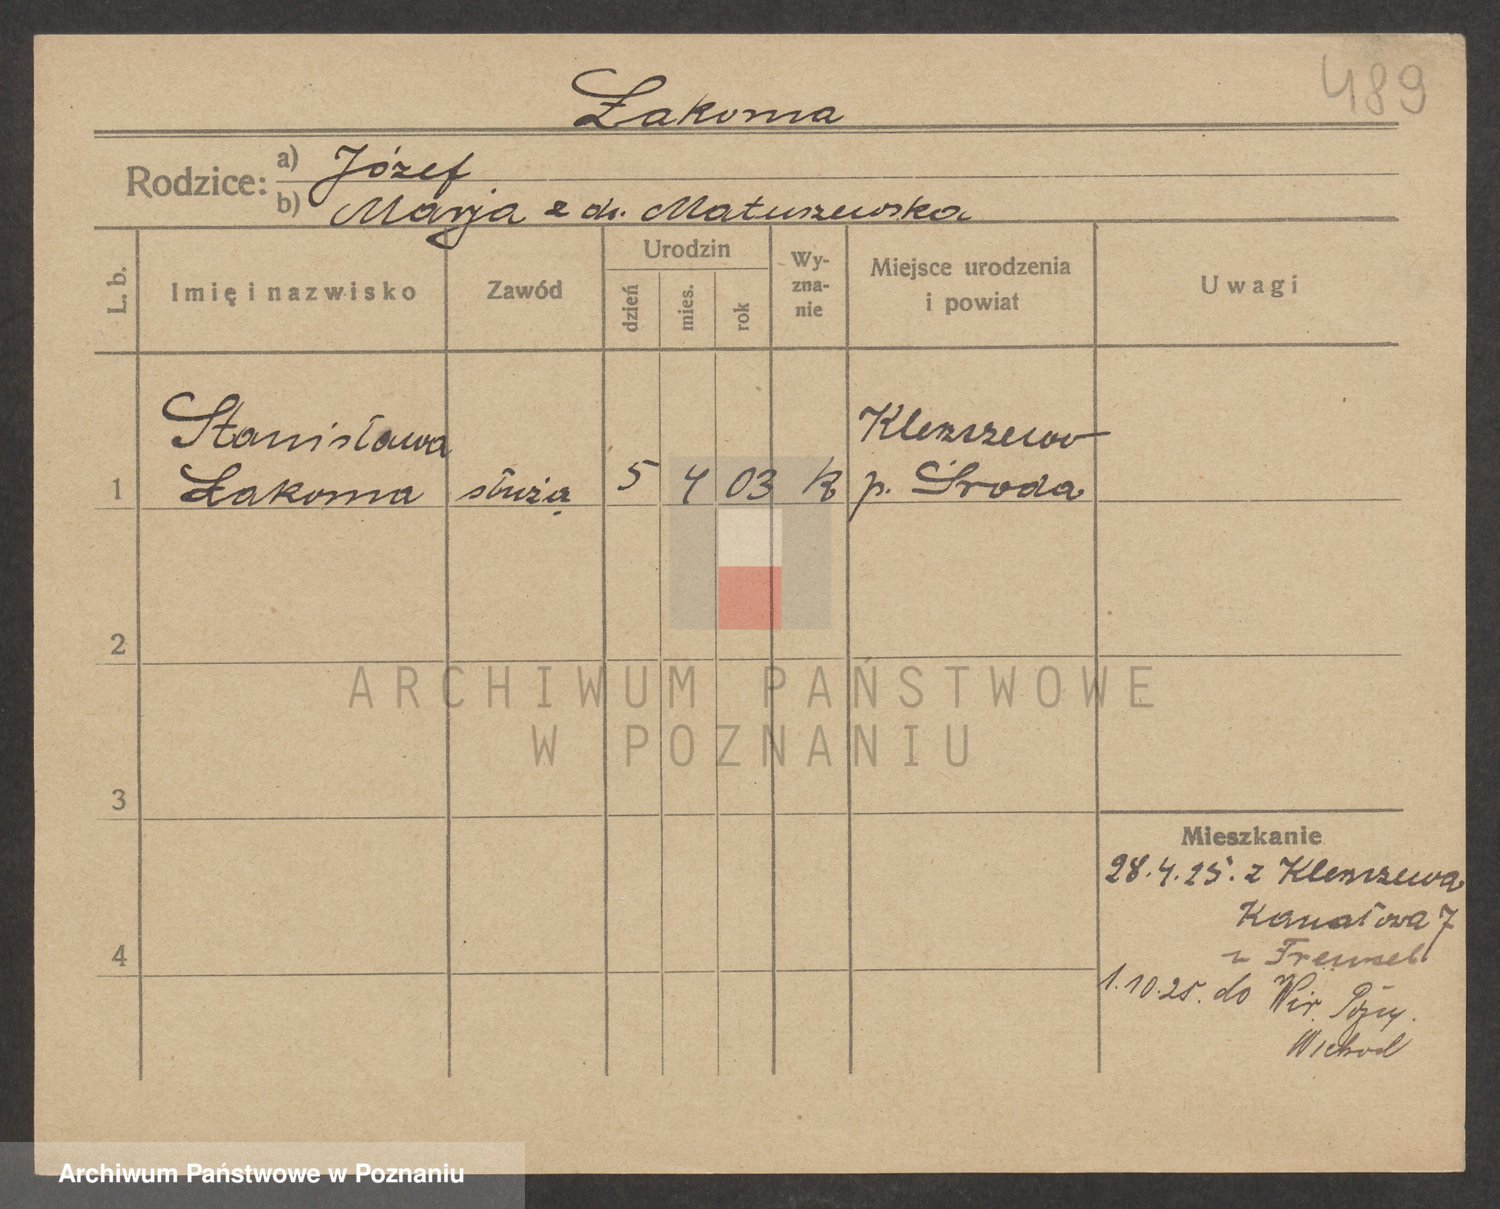 489
Łakoma
Rodzice: a) Józef
b) Marja z d. Matuszewska
L. b.
Imię i nazwisko
Zawód
Urodzin
dzień
mies.
rok
Wy-
zna-
nie
Miejsce urodzenia
i powiat
Uwagi
Stanisława Kleszczewo
1 Łakoma służą 5 4 03 k p. Środa
2
ARCHIWUM PAŃSTWOWE
W POZNANIU
3
Mieszkanie
28.4.25. z Kleszczewa
Kanałowa 7
4
1.10.25. do
Archiwum Państwowe w Poznaniu